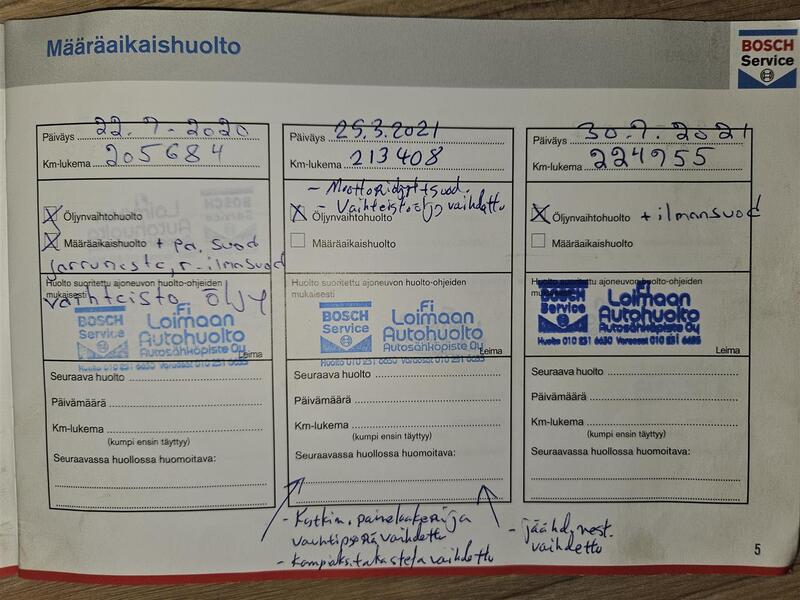 Määräaikaishuolto
BOSCH
Service
Päiväys 22.7-2020
Km-lukema 205684
Öljynvaihtohuolto
Määräaikaishuolto + pa. suod
jarruneste, r-ilmasuod
Huolto suoritettu ajoneuvon huolto-ohjeiden
mukaisesti
vaihteisto öljy
BOSCH
Service
.Fi
Loimaan
Autohuolto
Autosähköpiste Oy
Leima
Huolto 010 231 6630 Varaosat 010 231 6635
Seuraava huolto
Päivämäärä
Km-lukema
(kumpi ensin täyttyy)
Seuraavassa huollossa huomoitava:
Päiväys 25.3.2021
Km-lukema 213408
- Moottoriöljyt + suod.
- Vaihteistoöljo vaihdettu
Öljynvaihtohuolto
Määräaikaishuolto
Huolto suoritettu ajoneuvon huolto-ohjeiden
mukaisesti
BOSCH
Service
.Fi
Loimaan
Autohuolto
Autosähköpiste Oy
Leima
Huolto 010 231 6630 Varaosat 010 231 6635
Seuraava huolto
Päivämäärä
Km-lukema
(kumpi ensin täyttyy)
Seuraavassa huollossa huomoitava:
- Kytkin, painelaakeri ja
vauhtipyörä vaihdettu
- kampiaks. takastefa vaihdettu
- jäähd. nest.
vaihdettu
Päiväys 30.7.2021
Km-lukema 224955
Öljynvaihtohuolto + ilmansuod
Määräaikaishuolto
Huolto suoritettu ajoneuvon huolto-ohjeiden
mukaisesti
BOSCH
Service
.Fi
Loimaan
Autohuolto
Autosähköpiste Oy
Huolto 010 231 6630 Varaosat 010 231 6635
Leima
Seuraava huolto
Päivämäärä
Km-lukema
(kumpi ensin täyttyy)
Seuraavassa huollossa huomoitava:
5